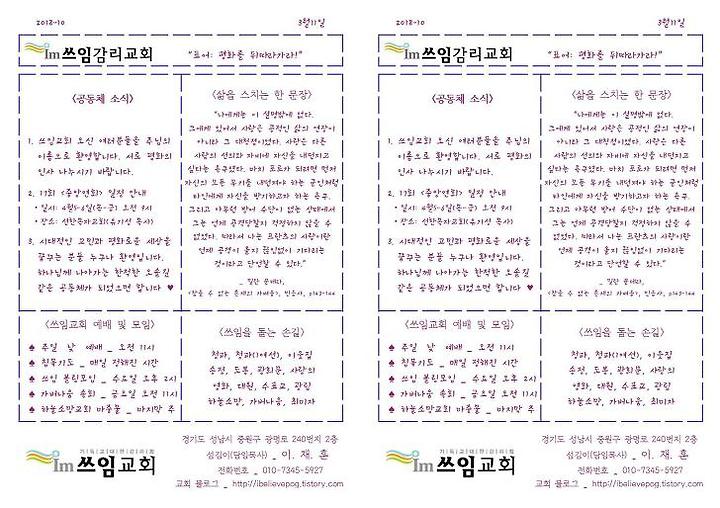 2018-10
3월11일
Im쓰임감리교회
"표어: 평화를 뒤따라가라!"
<공동체 소식>
1. 쓰임교회 오신 여러분들을 주님의
이름으로 환영합니다. 서로 평화의
인사 나누시기 바랍니다.
2. 17회 <중앙연회> 일정 안내
• 일시: 4월5-6일(목-금) 오전 9시
• 장소: 선한목자교회(유기성 목사)
3. 시대적인 고민과 평화로운 세상을
꿈꾸는 분들 누구나 환영입니다.
하나님께 나아가는 한적한 오솔길
같은 공동체가 되었으면 합니다 ♥
<삶을 스치는 한 문장>
"나에게는 이 설명밖에 없다.
그에게 있어서 사랑은 공적인 삶의 연장이
아니라 그 대척점이었다. 사랑은 다른
사람의 선의와 자비에 자신을 내던지고
싶다는 욕구였다. 마치 포로가 되려면 먼저
자신의 모든 무기를 내던져야 하는 군인처럼
타인에게 자신을 방기하고자 하는 욕구.
그리고 아무런 방어 수단이 없는 상태에서
그는 언제 공격당할지 걱정하지 않을 수
없었다. 따라서 나는 프란츠의 사랑이란
언제 공격이 올지 끊임없이 기다리는
것이라고 단언할 수 있다."
_ 밀란 쿤데라,
<참을 수 없는 존재의 가벼움>, 민음사, p143-144
<쓰임교회 예배 및 모임>
♠ 주일 낮 예배 _ 오전 11시
♠ 친목기도 _ 매일 정해진 시간
♠ 쓰임 볼런모임 _ 수요일 오후 2시
♠ 가버나움 속회 _ 금요일 오전 11시
♠ 하늘소망교회 마중물 _ 마지막 주
<쓰임을 돕는 손길>
청파, 청파(1여선), 이웃집
손정, 도봉, 광희문, 사랑의
영화, 대원, 수표교, 광림
하늘소망, 가버나움, 최미자
Im쓰임교회
경기도 성남시 중원구 광명로 240번지 2층
섬김이(담임목사) _ 이 재 훈
전화번호 _ 010-7345-5927
교회 블로그 _ http://ibelievepog.tistory.com
2018-10
3월11일
Im쓰임감리교회
"표어: 평화를 뒤따라가라!"
<공동체 소식>
1. 쓰임교회 오신 여러분들을 주님의
이름으로 환영합니다. 서로 평화의
인사 나누시기 바랍니다.
2. 17회 <중앙연회> 일정 안내
• 일시: 4월5-6일(목-금) 오전 9시
• 장소: 선한목자교회(유기성 목사)
3. 시대적인 고민과 평화로운 세상을
꿈꾸는 분들 누구나 환영입니다.
하나님께 나아가는 한적한 오솔길
같은 공동체가 되었으면 합니다 ♥
<삶을 스치는 한 문장>
"나에게는 이 설명밖에 없다.
그에게 있어서 사랑은 공적인 삶의 연장이
아니라 그 대척점이었다. 사랑은 다른
사람의 선의와 자비에 자신을 내던지고
싶다는 욕구였다. 마치 포로가 되려면 먼저
자신의 모든 무기를 내던져야 하는 군인처럼
타인에게 자신을 방기하고자 하는 욕구.
그리고 아무런 방어 수단이 없는 상태에서
그는 언제 공격당할지 걱정하지 않을 수
없었다. 따라서 나는 프란츠의 사랑이란
언제 공격이 올지 끊임없이 기다리는
것이라고 단언할 수 있다."
_ 밀란 쿤데라,
<참을 수 없는 존재의 가벼움>, 민음사, p143-144
<쓰임교회 예배 및 모임>
♠ 주일 낮 예배 _ 오전 11시
♠ 친목기도 _ 매일 정해진 시간
♠ 쓰임 볼런모임 _ 수요일 오후 2시
♠ 가버나움 속회 _ 금요일 오전 11시
♠ 하늘소망교회 마중물 _ 마지막 주
<쓰임을 돕는 손길>
청파, 청파(1여선), 이웃집
손정, 도봉, 광희문, 사랑의
영화, 대원, 수표교, 광림
하늘소망, 가버나움, 최미자
Im쓰임교회
경기도 성남시 중원구 광명로 240번지 2층
섬김이(담임목사) _ 이 재 훈
전화번호 _ 010-7345-5927
교회 블로그 _ http://ibelievepog.tistory.com